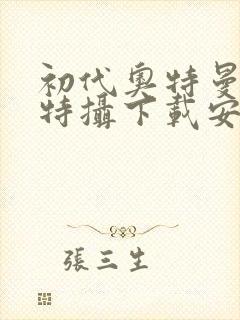 初代奧特曼
特攝下載安
張三生